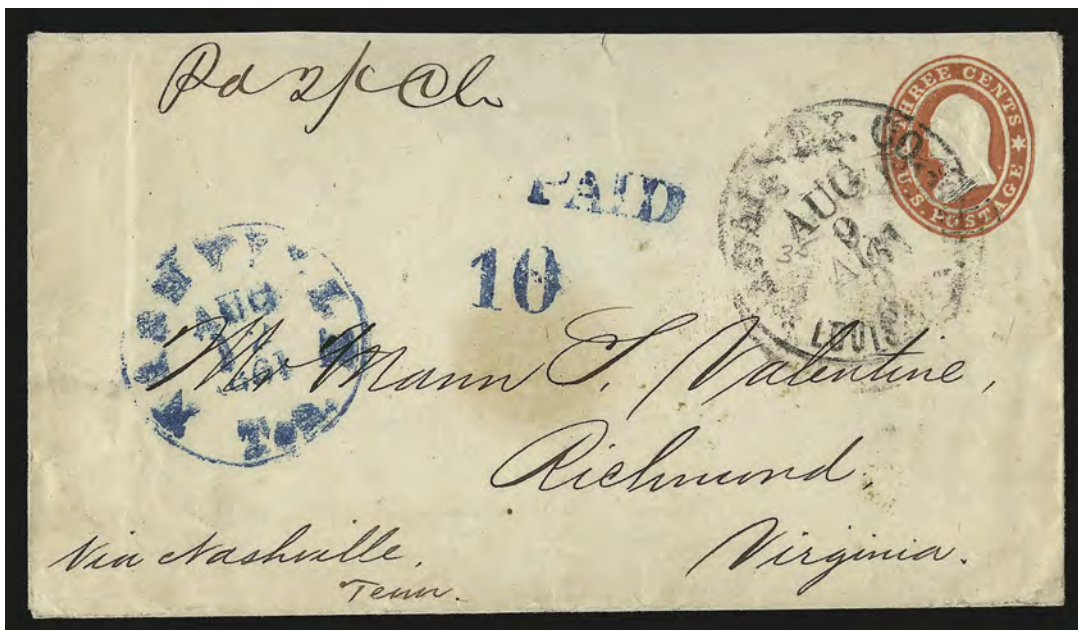 Pd 2/ Ch
THREE CENTS
U.S. POSTAGE
PAID
10
ADAMS EX. CO.
AUG
9
1861
LOUIS
NASHVILLE
AUG
1861
Ten.
Mr Mann S. Valentine,
Richmond,
Virginia.
Via Nashville.
Tenn.